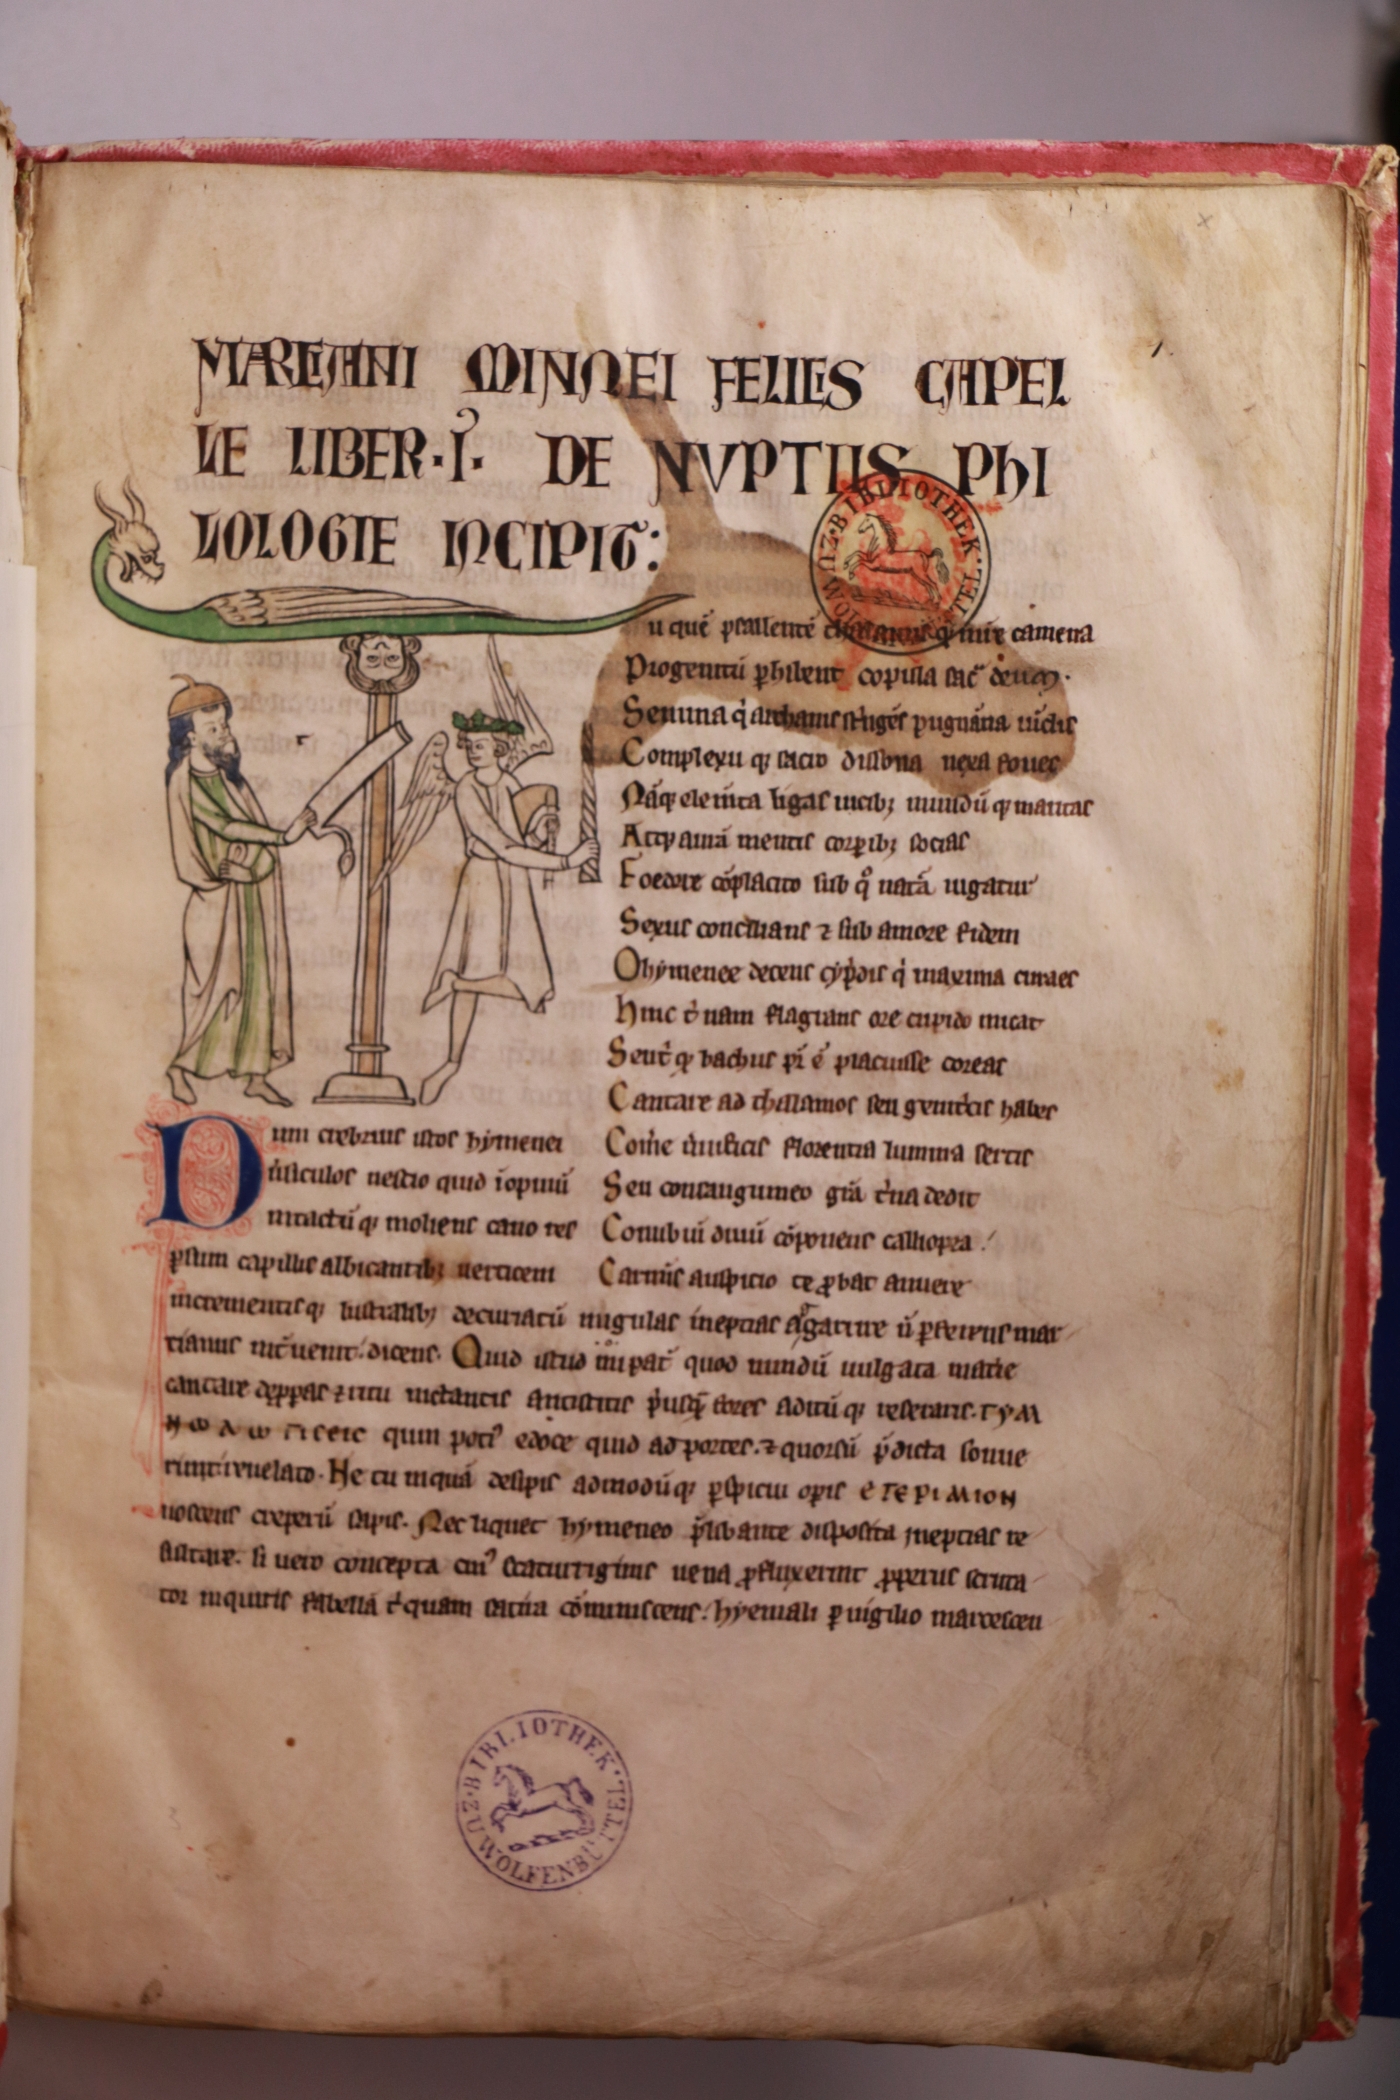 MARTIANI MINNEI FELICIS CAPEL
LE LIBER·I· DE NVPTIIS PhI
LOLOGIE INCIPIT:
u quē psallentē camena
Progenitū phibent copula sac deum·
Semina q̇ archanis stringēs pugnāna uīclis
Complexu q; sacro dissona nexa foues
Nāq; elemta ligas uicib; mundū q; maritas
Atq; aurā mentis corporib; socias
Foedere cōplacito sub q̊ natā iugatur
Sexus concilians ⁊ sub amore fidem
O hymenee decens cyp̄dis q̇ maxima curaes
hinc t̄ nam flagrans ore cupido micat
Seu t̄ q; bachus pī ē placuisse coreas
Cantare ad thalamos seu genitcis habes
Com̄e florentia lumina sertis
Seu consanguineo grā t̄na dedit
Conubiū diuū cōponens calliopea
Carmīs auspicio te pbat annuere
Dum crebrius istos hymenei
ūsiculos nescio quid īopinū
intactū q; moliens cano res
psum capillis albicantib; uerticem
incrementis q; lustralib; decuriatū nugulas ineptas aggarrire ū pferrens mar
tianus int̄uenit· dicens· Quid istud mī pat̄ quod nundū uulgata matie
cantare depperas ⁊ ritu nictantis antistitis p̄usq̄ fores aditū q; reseraris· ΓΥΜ
ΝωΛωΓΙCΕΙC quin poti' edoce quid adportes· ⁊ quorsū p̄dicta sonue
rint reuelato· Ne tu inquā desipis admodū q; pspicui opis ΕΓΕΡΙΜΙΟΝ
noscens creperū sapis· Nec liquet hymeneo p̄libante disposita ineptias re
sultare· si uero concepta cui' scaturriginis uena pfluxerint pperus scruta
tor inquiris fabellā t̄ quam satira cōminiscens· hyemali puigilio marcescen
BIBLIOTHEK ZU WOLFENBÜTTEL·
BIBLIOTHEK· ZU WOLFENBÜTTEL